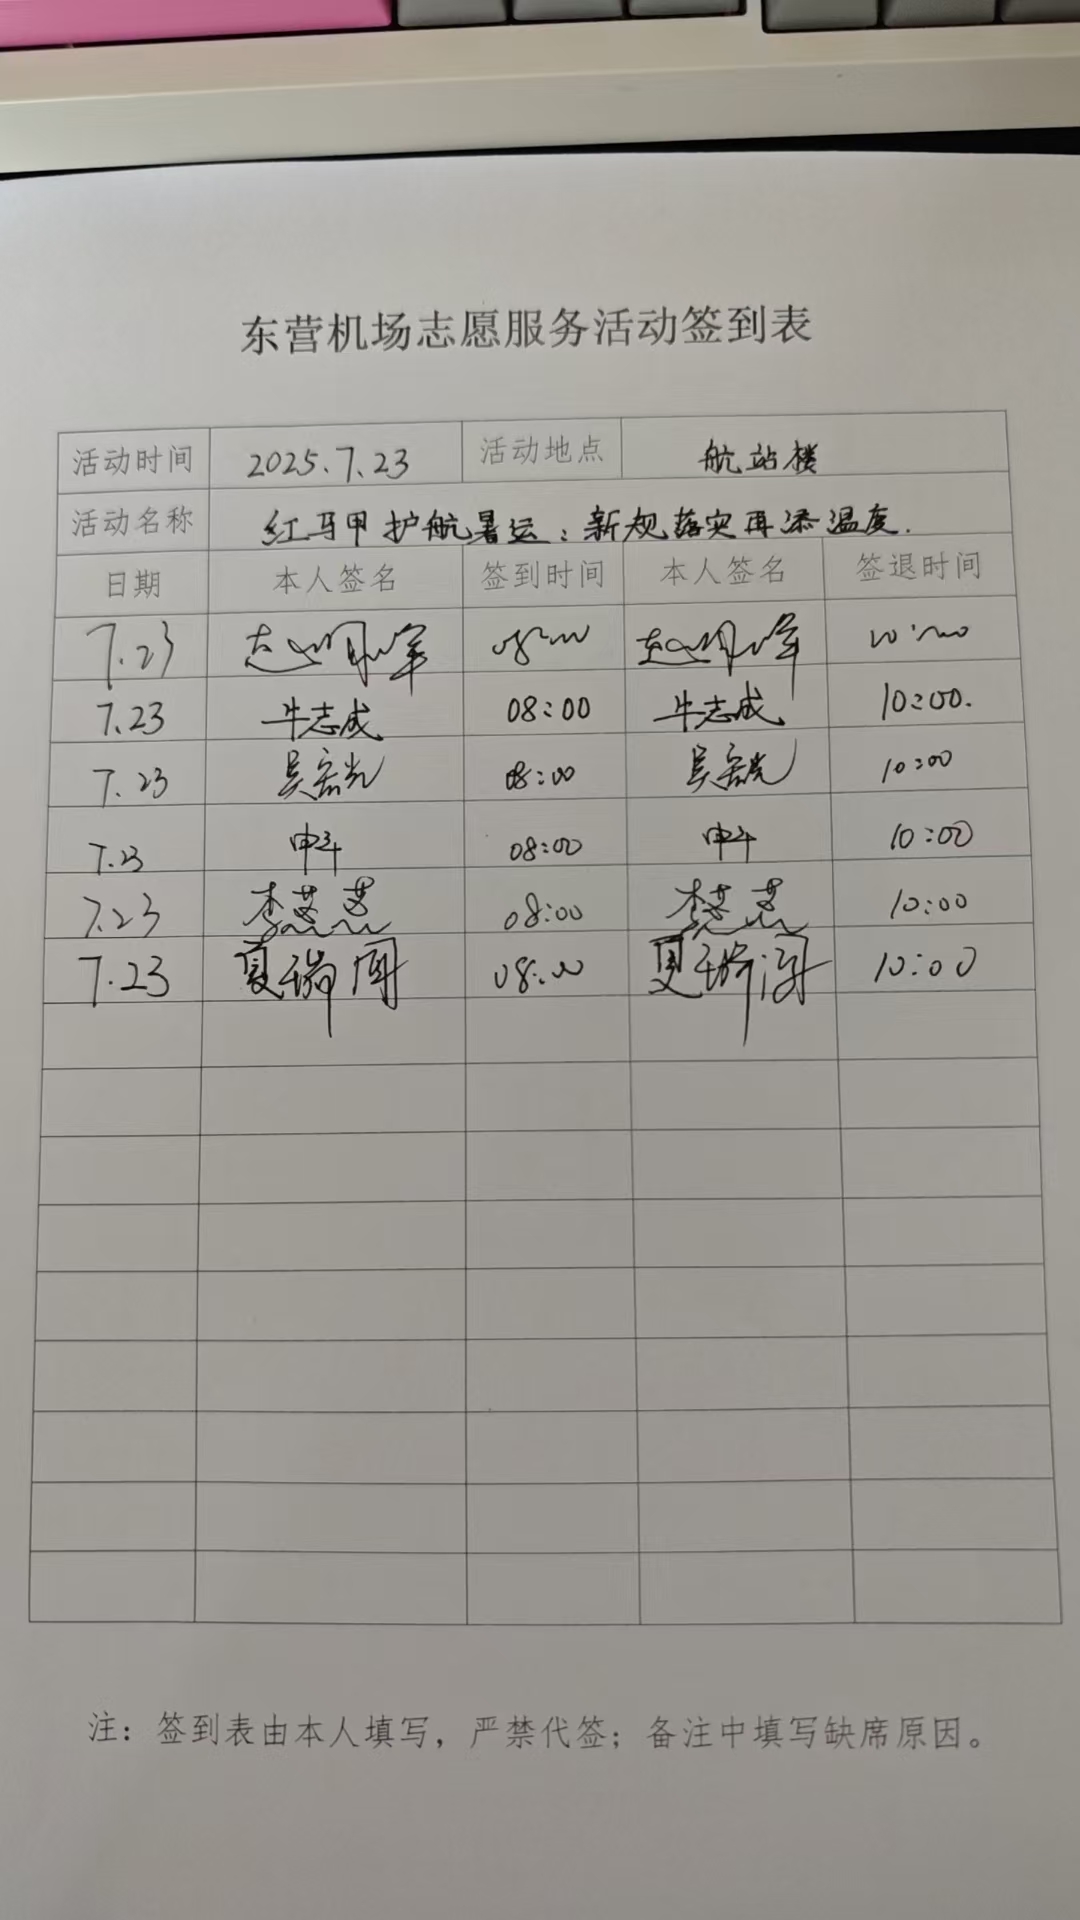 东营机场志愿服务活动签到表
活动时间 2025.7.23 活动地点 航站楼
活动名称 红马甲护航暑运：新规落实再添温度.
日期 本人签名 签到时间 本人签名 签退时间
7.23 08:00 10:00
7.23 牛志成 08:00 牛志成 10:00.
7.23 吴 08:00 吴 10:00
7.23 申 08:00 申 10:00
7.23 李 08:00 李 10:00
7.23 夏瑞 08:00 夏瑞 10:00
注：签到表由本人填写，严禁代签；备注中填写缺席原因。